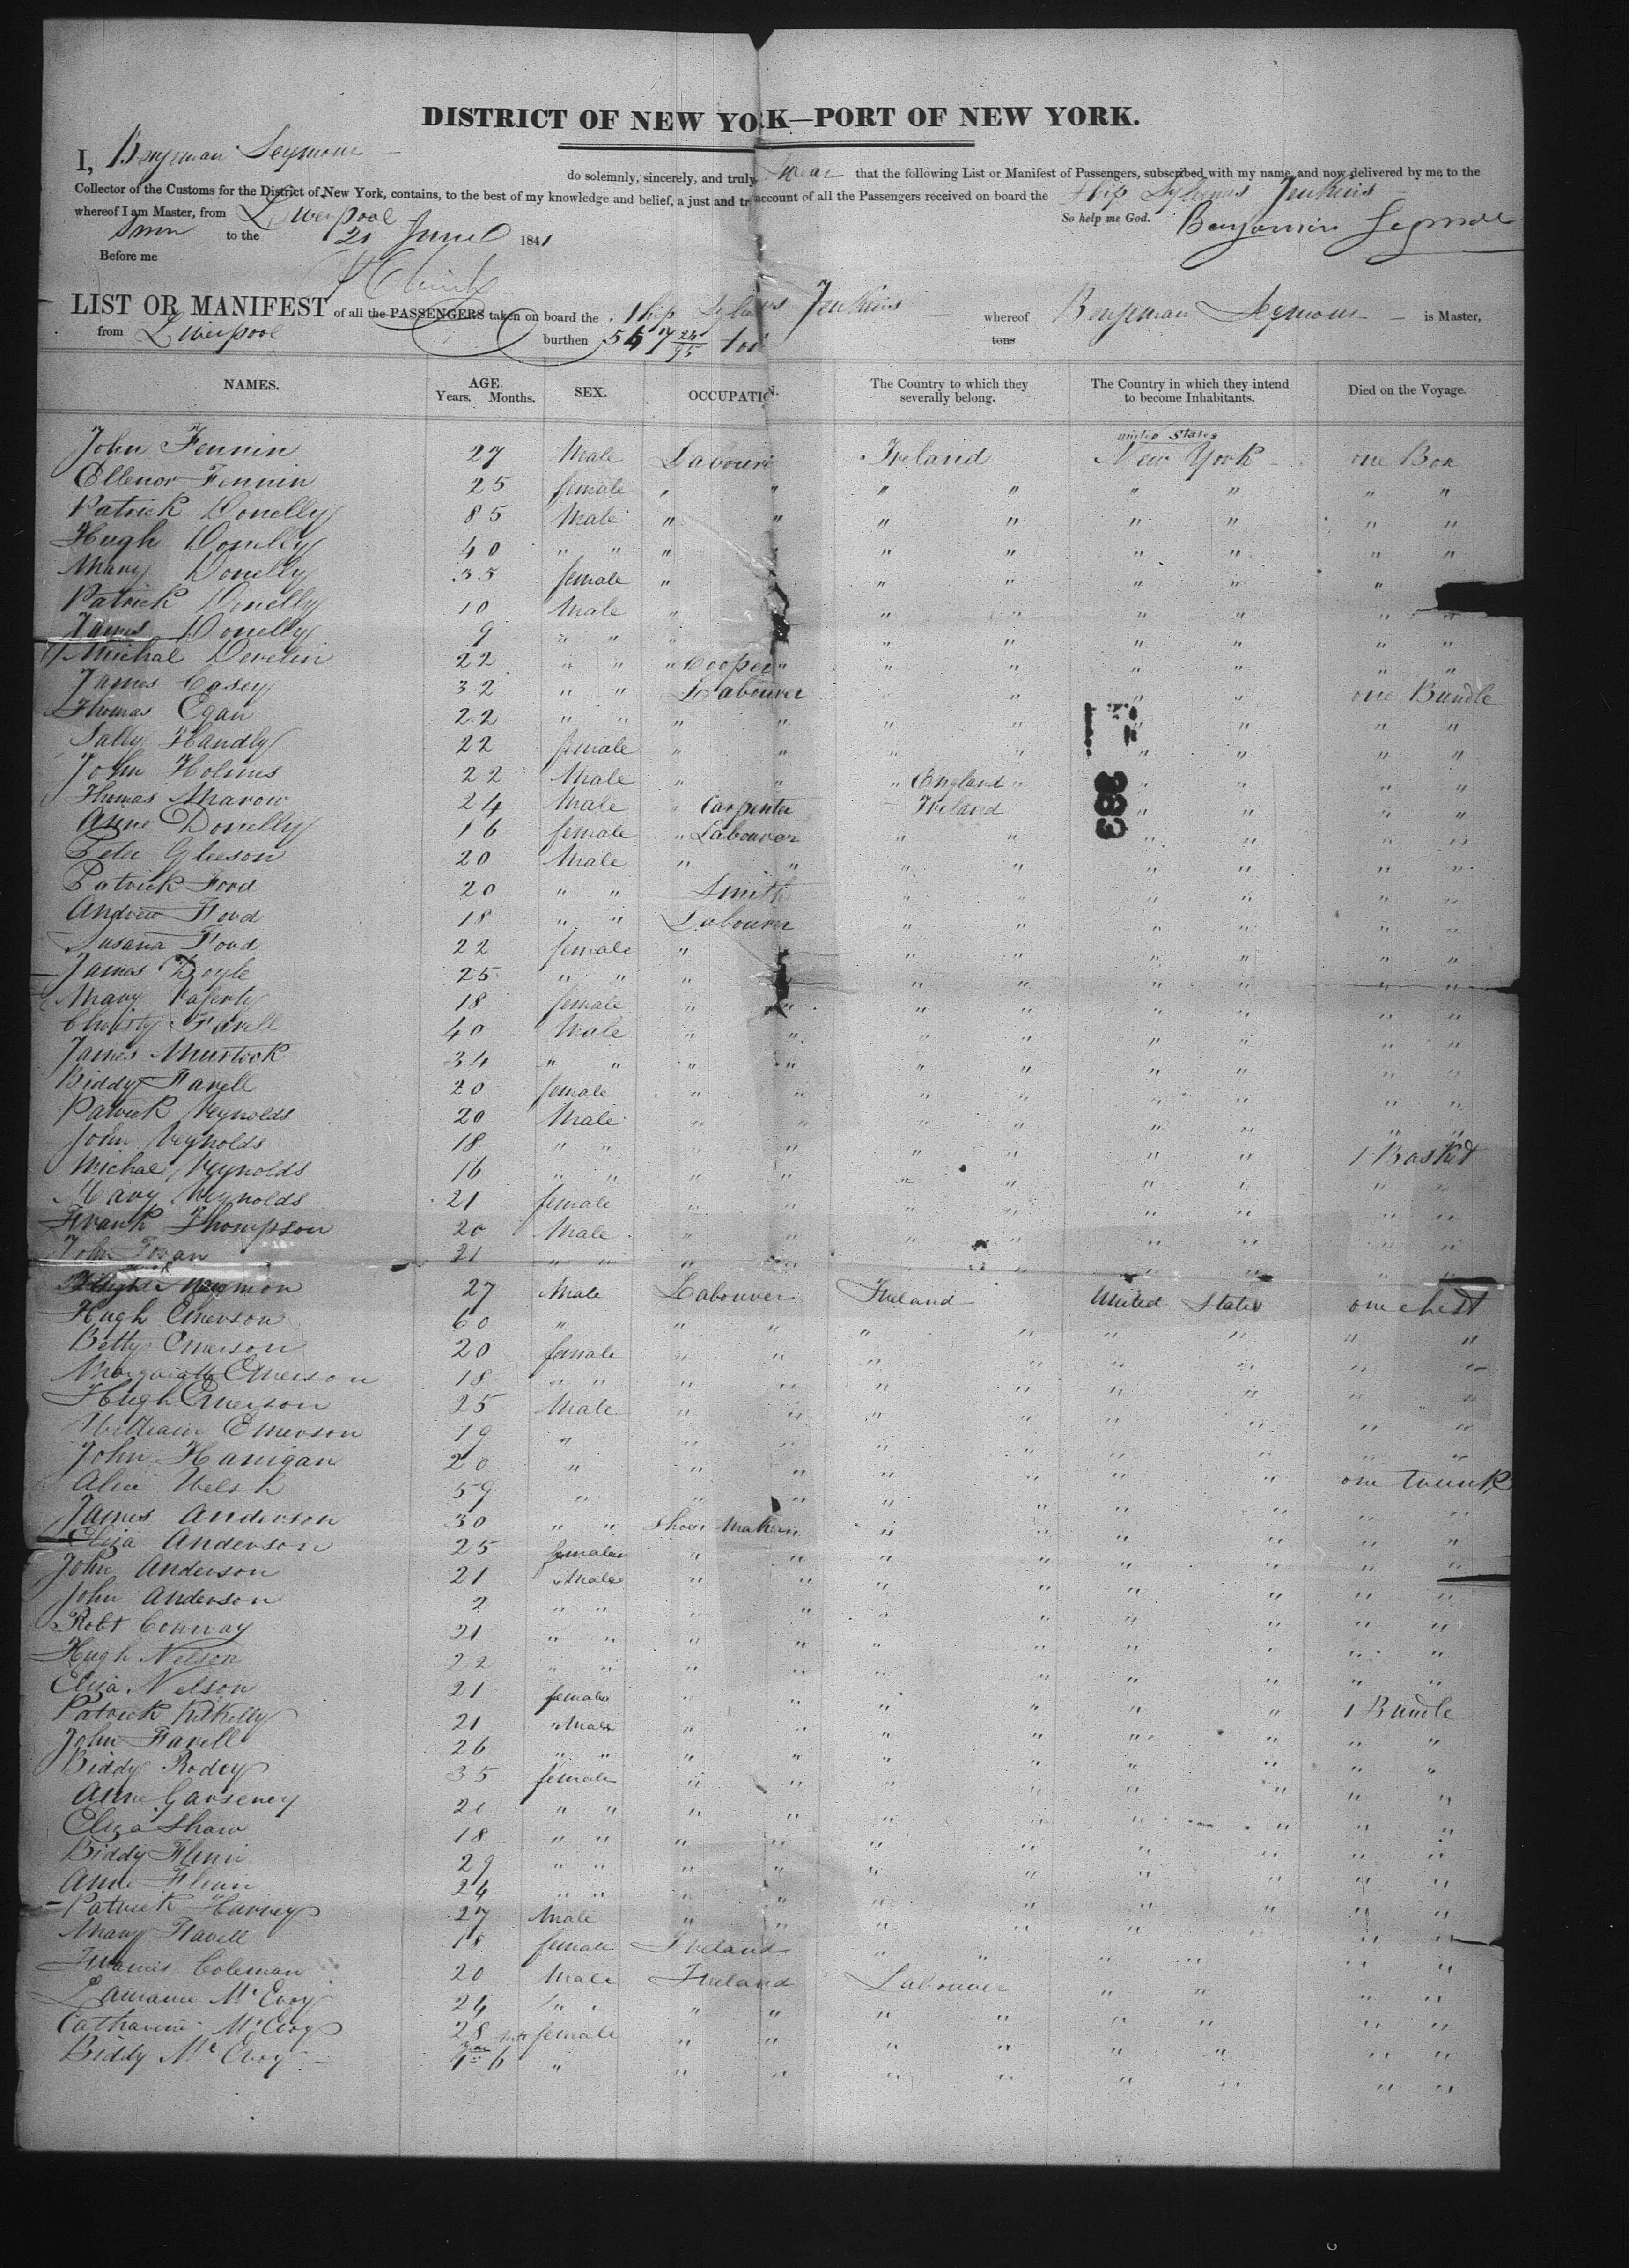 DISTRICT OF NEW YORK—PORT OF NEW YORK.
I, Benjeman Seymour do solemnly, sincerely, and truly Swear that the following List or Manifest of Passengers, subscribed with my name, and now delivered by me to the
Collector of the Customs for the District of New York, contains, to the best of my knowledge and belief, a just and tr account of all the Passengers received on board the Ship Jenkins
whereof I am Master, from Liverpool So help me God.
Sworn to the 21 June 1841 Benjamin Seymour
Before me
LIST OR MANIFEST of all the PASSENGERS taken on board the Ship Jenkins whereof Benjeman Seymour is Master,
from Liverpool burthen 547 24/95 tons
NAMES. AGE. Years. Months. SEX. OCCUPATION. The Country to which they severally belong. The Country in which they intend to become Inhabitants. Died on the Voyage.
John Fennin 27 Male Labourer Ireland United States New York one Box
Ellenor Fennin 25 female " " " " " " " "
Patrick Donelly 85 Male " " " " " " " "
Hugh Donelly 40 " " " " " " " " "
Mary Donelly 35 female " " " " " "
Patrick Donelly 10 Male " " " " " " "
James Donelly 9 " " " " " " " " "
Michal Develin 22 " " " Cooper " " " " " " "
James Casey 32 " " Labourer " " " one Bundle
Thomas Egan 22 " " " " " " " " "
Sally Handly 22 female " " " " " " " "
John Holmes 22 Male " " " England " " " " "
Thomas Marow 24 Male " Carpenter Ireland " " " "
Anne Donelly 16 female " Labourer " " " " " "
Peter Gleeson 20 Male " " " " " " " "
Patrick Ford 20 " " Smith " " " " " "
Andrew Ford 18 " " Labourer " " " " " "
Susana Ford 22 female " " " " " " "
James Doyle 25 " " " " " " " " "
Mary 18 female " " " " " " " "
Christy Farell 40 Male " " " " " " "
James Murtock 34 " " " " " " " " " "
Biddy Farell 20 female " " " " " " " "
Patrick Reynolds 20 Male " " " " " " " "
John Reynolds 18 " " " " " " " 1 Basket
Michael Reynolds 16 " " " " " " " " " "
Mary Reynolds 21 female " " " " " " " "
Frank Thompson 20 Male " " " " " " " "
John 21 " " " " " " " " " "
27 Male Labourer Ireland United States one chest
Hugh Emerson 60 " " " " " " " " "
Betty Emerson 20 female " " " " " " " "
Emerson 18 " " " " " " " " " "
Hugh Emerson 25 Male " " " " " " " "
William Emerson 19 " " " " " " " " "
John Hanigan 20 " " " " " " " one trunk
Alice Welsh 59 " " " " " " " " "
James Anderson 30 " " Shoe Maker " " " " " "
Eliza Anderson 25 female " " " " " " " "
John Anderson 21 Male " " " " " " " "
John Anderson 2 " " " " " " " " " "
Robt Conway 21 " " " " " " " " " "
Hugh Nelson 22 " " " " " " " " " "
Eliza Nelson 21 female " " " " " " 1 Bundle
Patrick Kilkelly 21 Male " " " " " " " "
John Farell 26 " " " " " " " " " "
Biddy Rodey 35 female " " " " " " " "
Anne Garseney 20 " " " " " " " " " "
Eliza Shaw 18 " " " " " " " " " "
Biddy Flinn 29 " " " " " " " " " "
Anne Flinn 24 " " " " " " " " " "
Patrick Harvey 27 Male " " " " " " " "
Mary Farell 18 female Ireland " " " " " "
Coleman 20 Male Ireland Labourer " " " "
McEvoy 24 " " " " " " " " " "
Catharine McEvoy 28 female " " " " " " " "
Biddy McEvoy 6 " " " " " " " " "
383